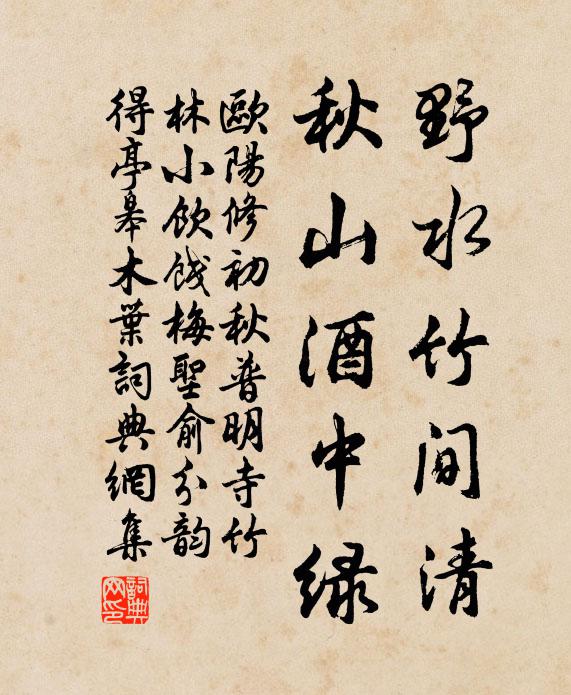 野水竹间清
秋山酒中绿
歐陽修初秋普明寺竹
林小飲餞梅聖俞分韵
得亭皋木葉詞典網集
詞典网印